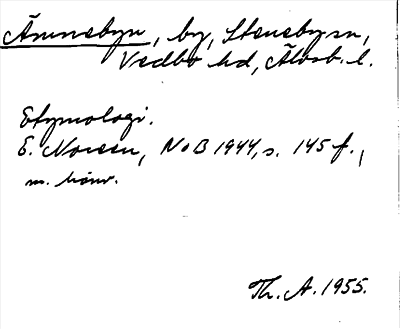 Ämnebyn, by, Stenebysn,
Vedbo hd, Älvsb. l.
Etymologi.
E. Noreen, NoB 1944, s. 145 f.,
m. hänv.
Th. A. 1955.